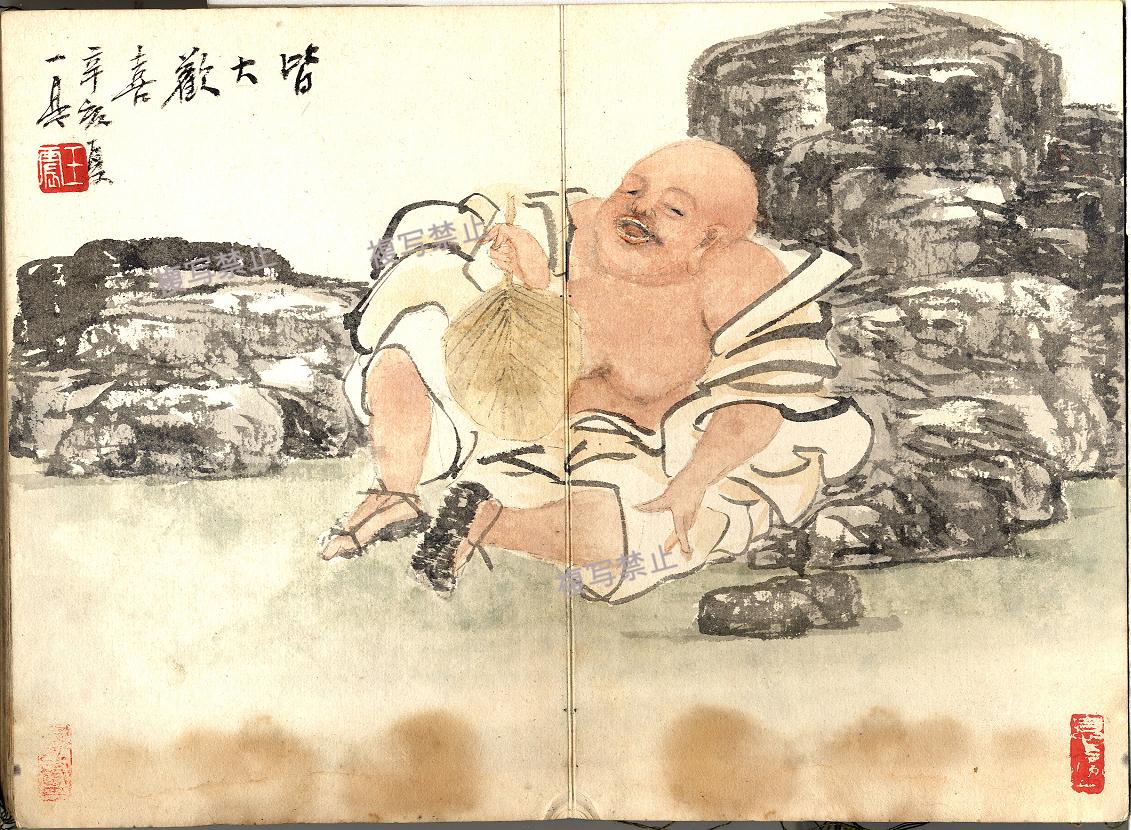 皆大歡喜
辛亥夏
一亭
王震
複写禁止
複写禁止
複写禁止